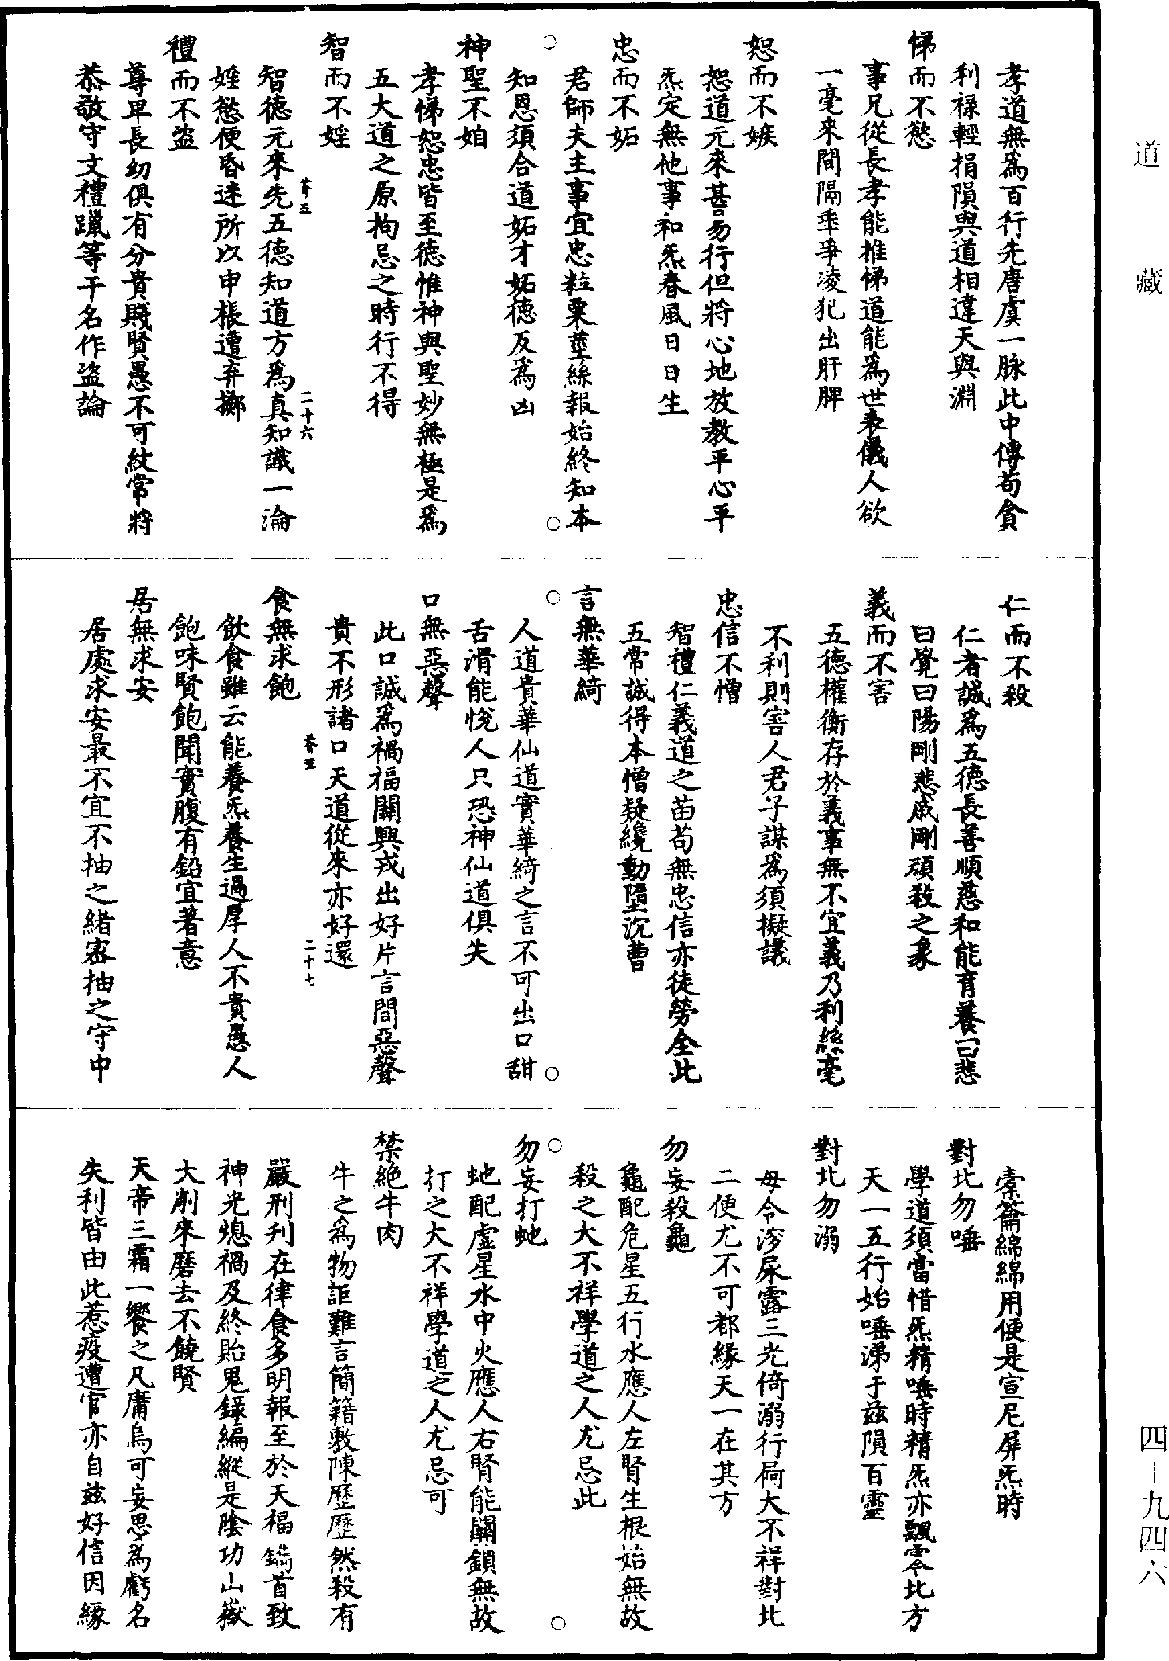 道藏
孝道無爲百行先唐虞一脉此中傳苟貪
利祿輕捐隕與道相違天與淵
悌而不慾
事兄從長孝能推悌道能爲世表儀人欲
一毫來間隔乖爭凌犯出肝脾
恕而不嫉
恕道元來甚易行但將心地放教平心平
炁定無他事和炁春風日日生
忠而不妬
君師夫主事宜忠粒粟莖絲報始終知本
知恩須合道妬才妬德反爲凶
神聖不妲
孝悌恕忠皆至德惟神與聖妙無極是爲
五大道之原拘忌之時行不得
智而不婬
智德元來先五德知道方爲真知識一淪
婬慾便昏迷所以申棖遭弃擲
禮而不盜
尊卑長幼俱有分貴賤賢愚不可紋常將
恭敬守文禮躐等干名作盜論
二十六
仁而不殺
仁者誠爲五德長善順慈和能育養曰悲
曰覺曰陽剛悲咸剛頑殺之象
義而不害
五德權衡存於義事無不宜義乃利絲毫
不利則害人君子謀爲須擬議
忠信不憎
智禮仁義道之苗苟無忠信亦徒勞全此
五常誠得本憎疑纔動墮沉曹
言無華綺
人道貴華仙道實華綺之言不可出口甜
舌滑能悅人只恐神仙道俱失
口無惡聲
此口誠爲禍福關興戎出好片言間惡聲
貴不形諸口天道從來亦好還
食無求飽
飲食雖云能養炁養生過厚人不貴愚人
飽味賢飽聞實腹有鉛宜著意
居無求安
居處求安最不宜不抽之緒密抽之守中
二十七
橐籥綿綿用便是宣尼屏炁時
對北勿唾
學道須當惜炁精唾時精炁亦飄零北方
天一五行始唾涕于茲隕百靈
對北勿溺
毋令溲尿露三光倚溺行屙大不祥對北
二便尤不可都緣天一在其方
勿妄殺龜
龜配危星五行水應人左腎生根始無故
殺之大不祥學道之人尤忌此
勿妄打虵
虵配虛星水中火應人右腎能關鎖無故
打之大不祥學道之人尤忌可
禁絕牛肉
牛之爲物詎難言簡籍敷陳歷歷然殺有
嚴刑刋在律食多明報至於天福鐫首致
神光熄禍及終貽鬼錄編縱是陰功山嶽
大削來磨去不饒賢
天帝三霜一饗之凡庸烏可妄思爲虧名
失利皆由此惹疫遭官亦自茲好信因緣
四-九四六